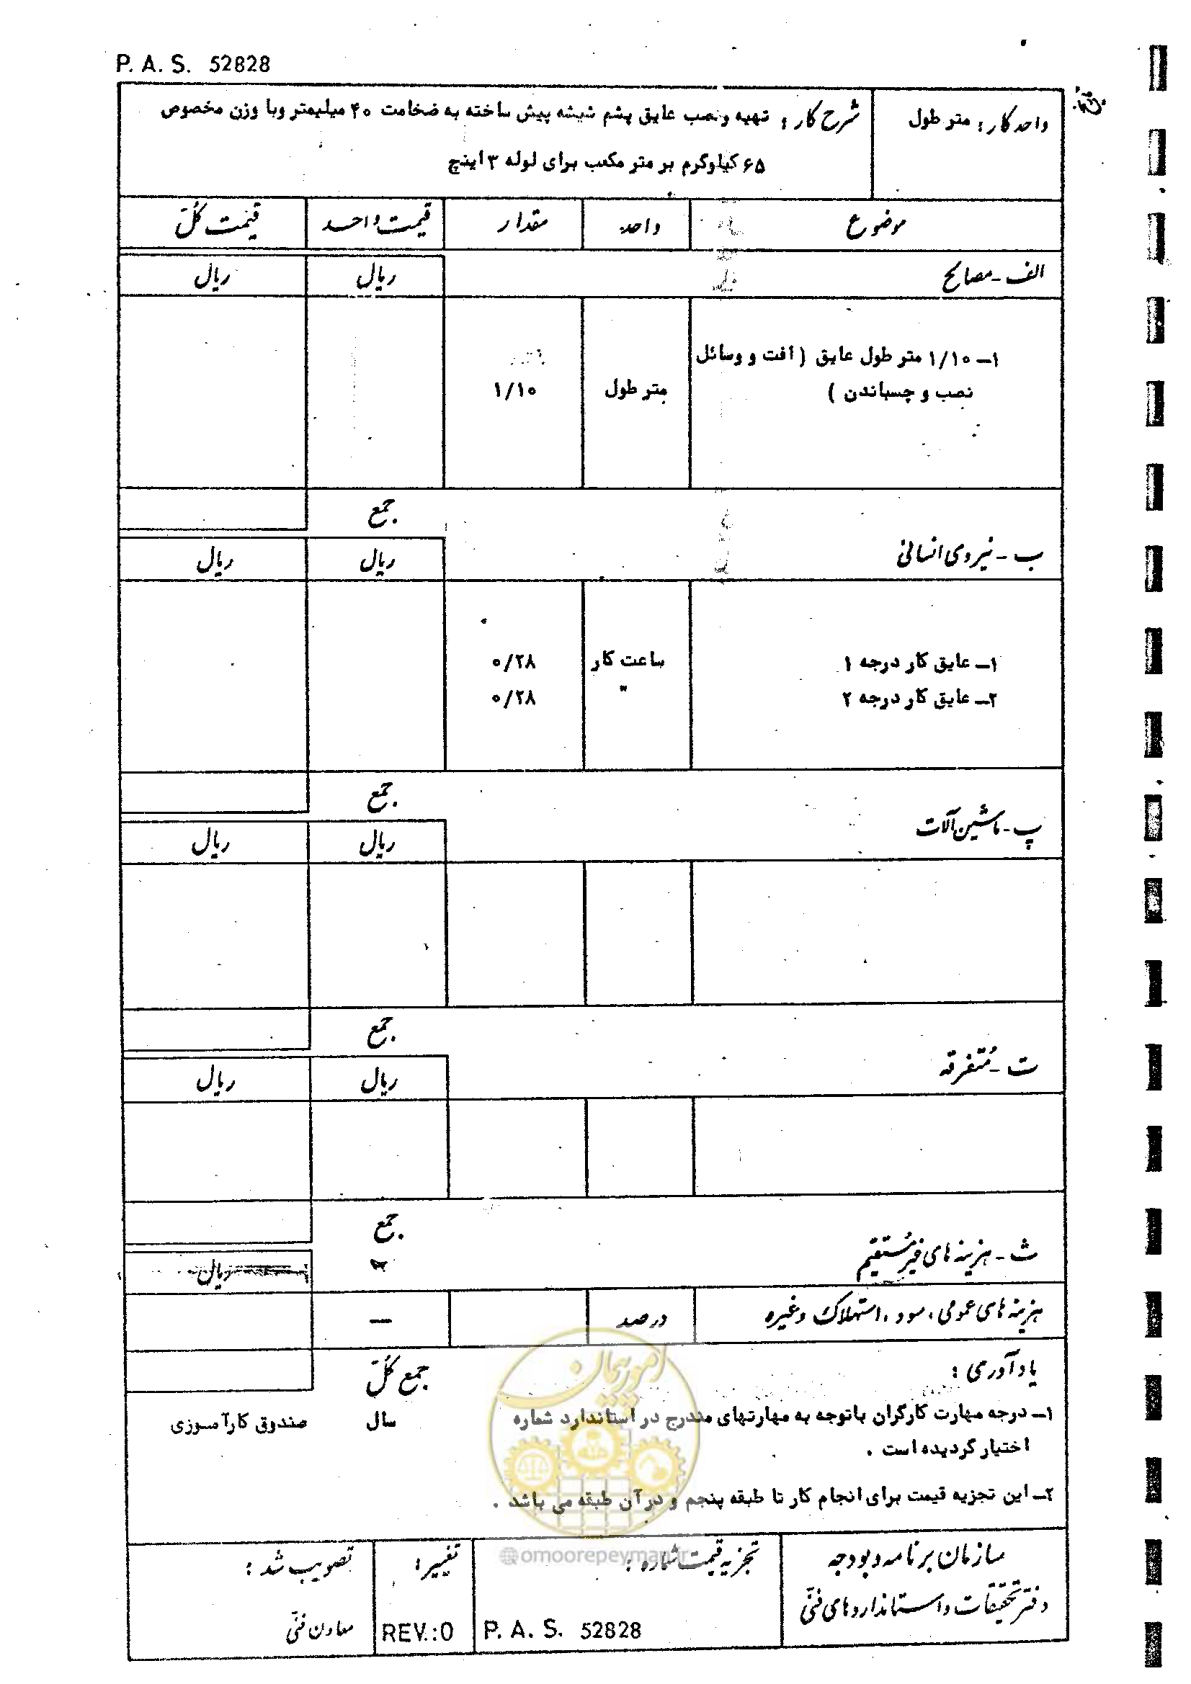 P. A. S. 52828
واحد کار : متر طول
شرح کار : تهیه ونصب عایق پشم شیشه پیش ساخته به ضخامت ۴۰ میلیمتر وبا وزن مخصوص
۶۵ کیلوگرم بر متر مکعب برای لوله ۳ اینچ
موضوع واحد مقدار قیمت واحد قیمت کل
الف - مصالح ریال ریال
۱ــ ۱/۱۰ متر طول عایق ( افت و وسائل
نصب و چسباندن ) متر طول ۱/۱۰
جمع
ب - نیروی انسانی ریال ریال
۱ــ عایق کار درجه ۱ ساعت کار ۰/۲۸
۲ــ عایق کار درجه ۲ " ۰/۲۸
جمع
پ - ماشین آلات ریال ریال
جمع
ت - متفرقه ریال ریال
جمع
ث - هزینه های غیرمستقیم ریال
هزینه های عمومی ، سود ، استهلاک وغیره درصد —
یادآوری : جمع کل
۱ــ درجه مهارت کارگران باتوجه به مهارتهای مندرج در استاندارد شماره سال صندوق کارآموزی
اختیار گردیده است .
۲ــ این تجزیه قیمت برای انجام کار تا طبقه پنجم و درآن طبقه می باشد .
امور پیمان
@omoorepeyman.ir
سازمان برنامه وبودجه
دفتر تحقیقات واستانداردهای فنی
تجزیه قیمت شماره :
P. A. S. 52828
تغییر :
REV.:0
تصویب شد :
معاون فنی